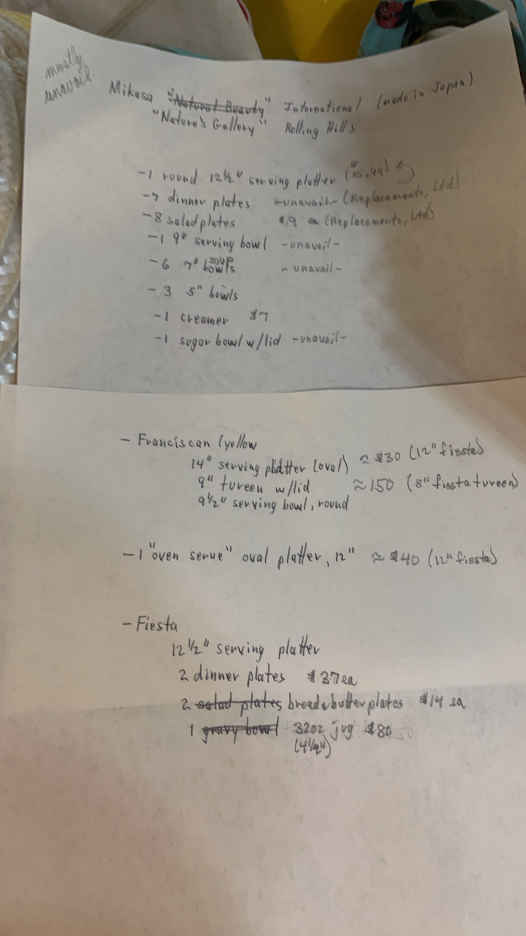 mostly
unavail
Mikasa "Natural Beauty" International (made in Japan)
"Nature's Gallery" Rolling Hills
- 1 round 12½" serving platter
- 7 dinner plates -unavail- (Replacements, Ltd)
- 8 salad plates $9 ea (Replacements, Ltd)
- 1 9" serving bowl -unavail-
- 6 7" soup bowls -unavail-
- 3 5" bowls
- 1 creamer $7
- 1 sugar bowl w/lid -unavail-
- Franciscan (yellow
14" serving platter (oval) ≈ $30 (12" fiesta)
9" tureen w/lid ≈ 150 (8" fiesta tureen)
9½" serving bowl, round
- 1 "oven serve" oval platter, 12" ≈ $40 (12" fiesta)
- Fiesta
12½" serving platter
2 dinner plates $37 ea
2 salad plates bread&butter plates $14 ea
1 gravy bowl 32oz jug $80
(4½")